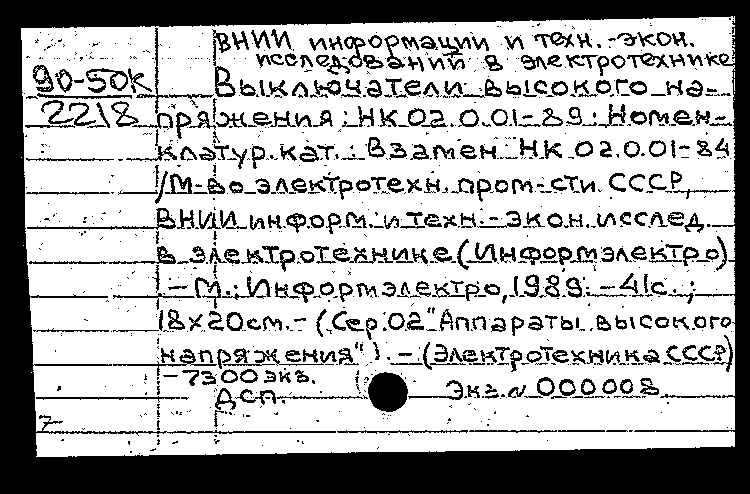 ВНИИ информации и техн.-экон.
исследований в электротехнике
90-50к Выключатели высокого на-
2218 пряжения: НК 02.0.01-89: Номен-
клатур. кат.: Взамен НК 02.0.01-84
/М-во электротехн. пром-сти СССР,
ВНИИ информ. и техн.-экон. исслед.
в электротехнике (Информэлектро)
.- М.: Информэлектро, 1989. - 41с.;
18х20см. - (Сер. 02 "Аппараты высокого
напряжения"). - (Электротехника СССР)
- 7300 экз.
ДСП. Экз. N 000008
7-